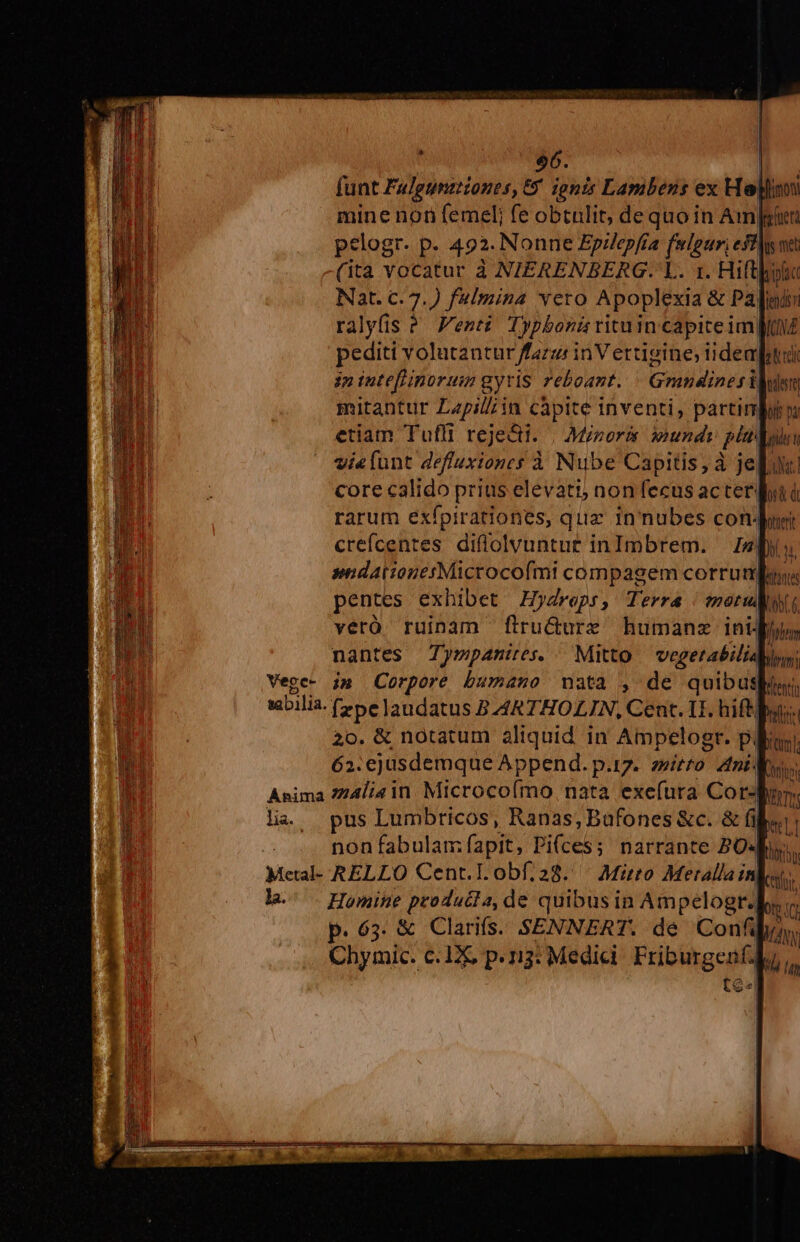 96.
ſunt Fulgurationes, & ignis Lambens ex Ho-
mine non ſemel; ſe obtulit, de quo in Am-
pelogr. p. 492. Nonne Epilepſia fulgur; eſt
(ita vocatur à NIERENBERG. L. 1. Hiſt.
Nat. c. 7.) fulmina vero Apoplexia & Pa-
ralyſis? Venti Typhonis ritu in capite im-
pediti volutantur flatus in Vertigine, iidem
in inteſtinorum gyris reboant. Grandines i-
mitantur Lapilli in capite inventi, partim
etiam Tuſſi rejecti. Minoris mundi plu-
viæ ſunt defluxiones à Nube Capitis, à je-
core calido prius elevati, non ſecus ac ter-
rarum exſpirationes, quæ in nubes con-
creſcentes diſſolvuntur in Imbrem. In-
undationes Microcoſmi compagem corrum-
pentes exhibet Hydrops, Terræ motum
verò ruinam ſtructuræ humanæ ini-
nantes Tympanites. Mitto vegetabilia
Vege- in Corpore humano nata, de quibus
tabilia. ſæpe laudatus BARTHOLIN, Cent. II. hiſt.
20. & notatum aliquid in Ampelogr. p.
62. ejusdemque Append. p. 17. mitto Ani-
Anima malia in Microcoſmo nata exeſura Cor-
lia. pus Lumbricos, Ranas, Bufones &c. & ſi
non fabulam ſapit, Piſces; narrante BO-
Metal- RELLO Cent. I. obſ. 28. Mitto Metalla in
la. Homine producta, de quibus in Ampelogr.
p. 63. & Clariſs. SENNERT. de Conſ.
Chymic. c. IX. p. 113. Medici Friburgenſ.
te-